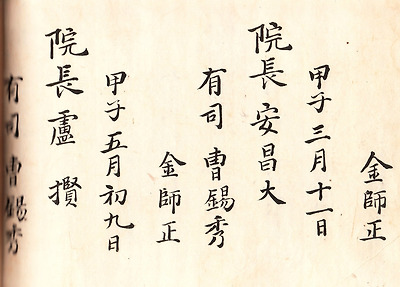 金師正
甲子三月十一日
院長安昌大
有司曺錫秀
金師正
甲子五月初九日
院長盧攢
有司曺錫秀